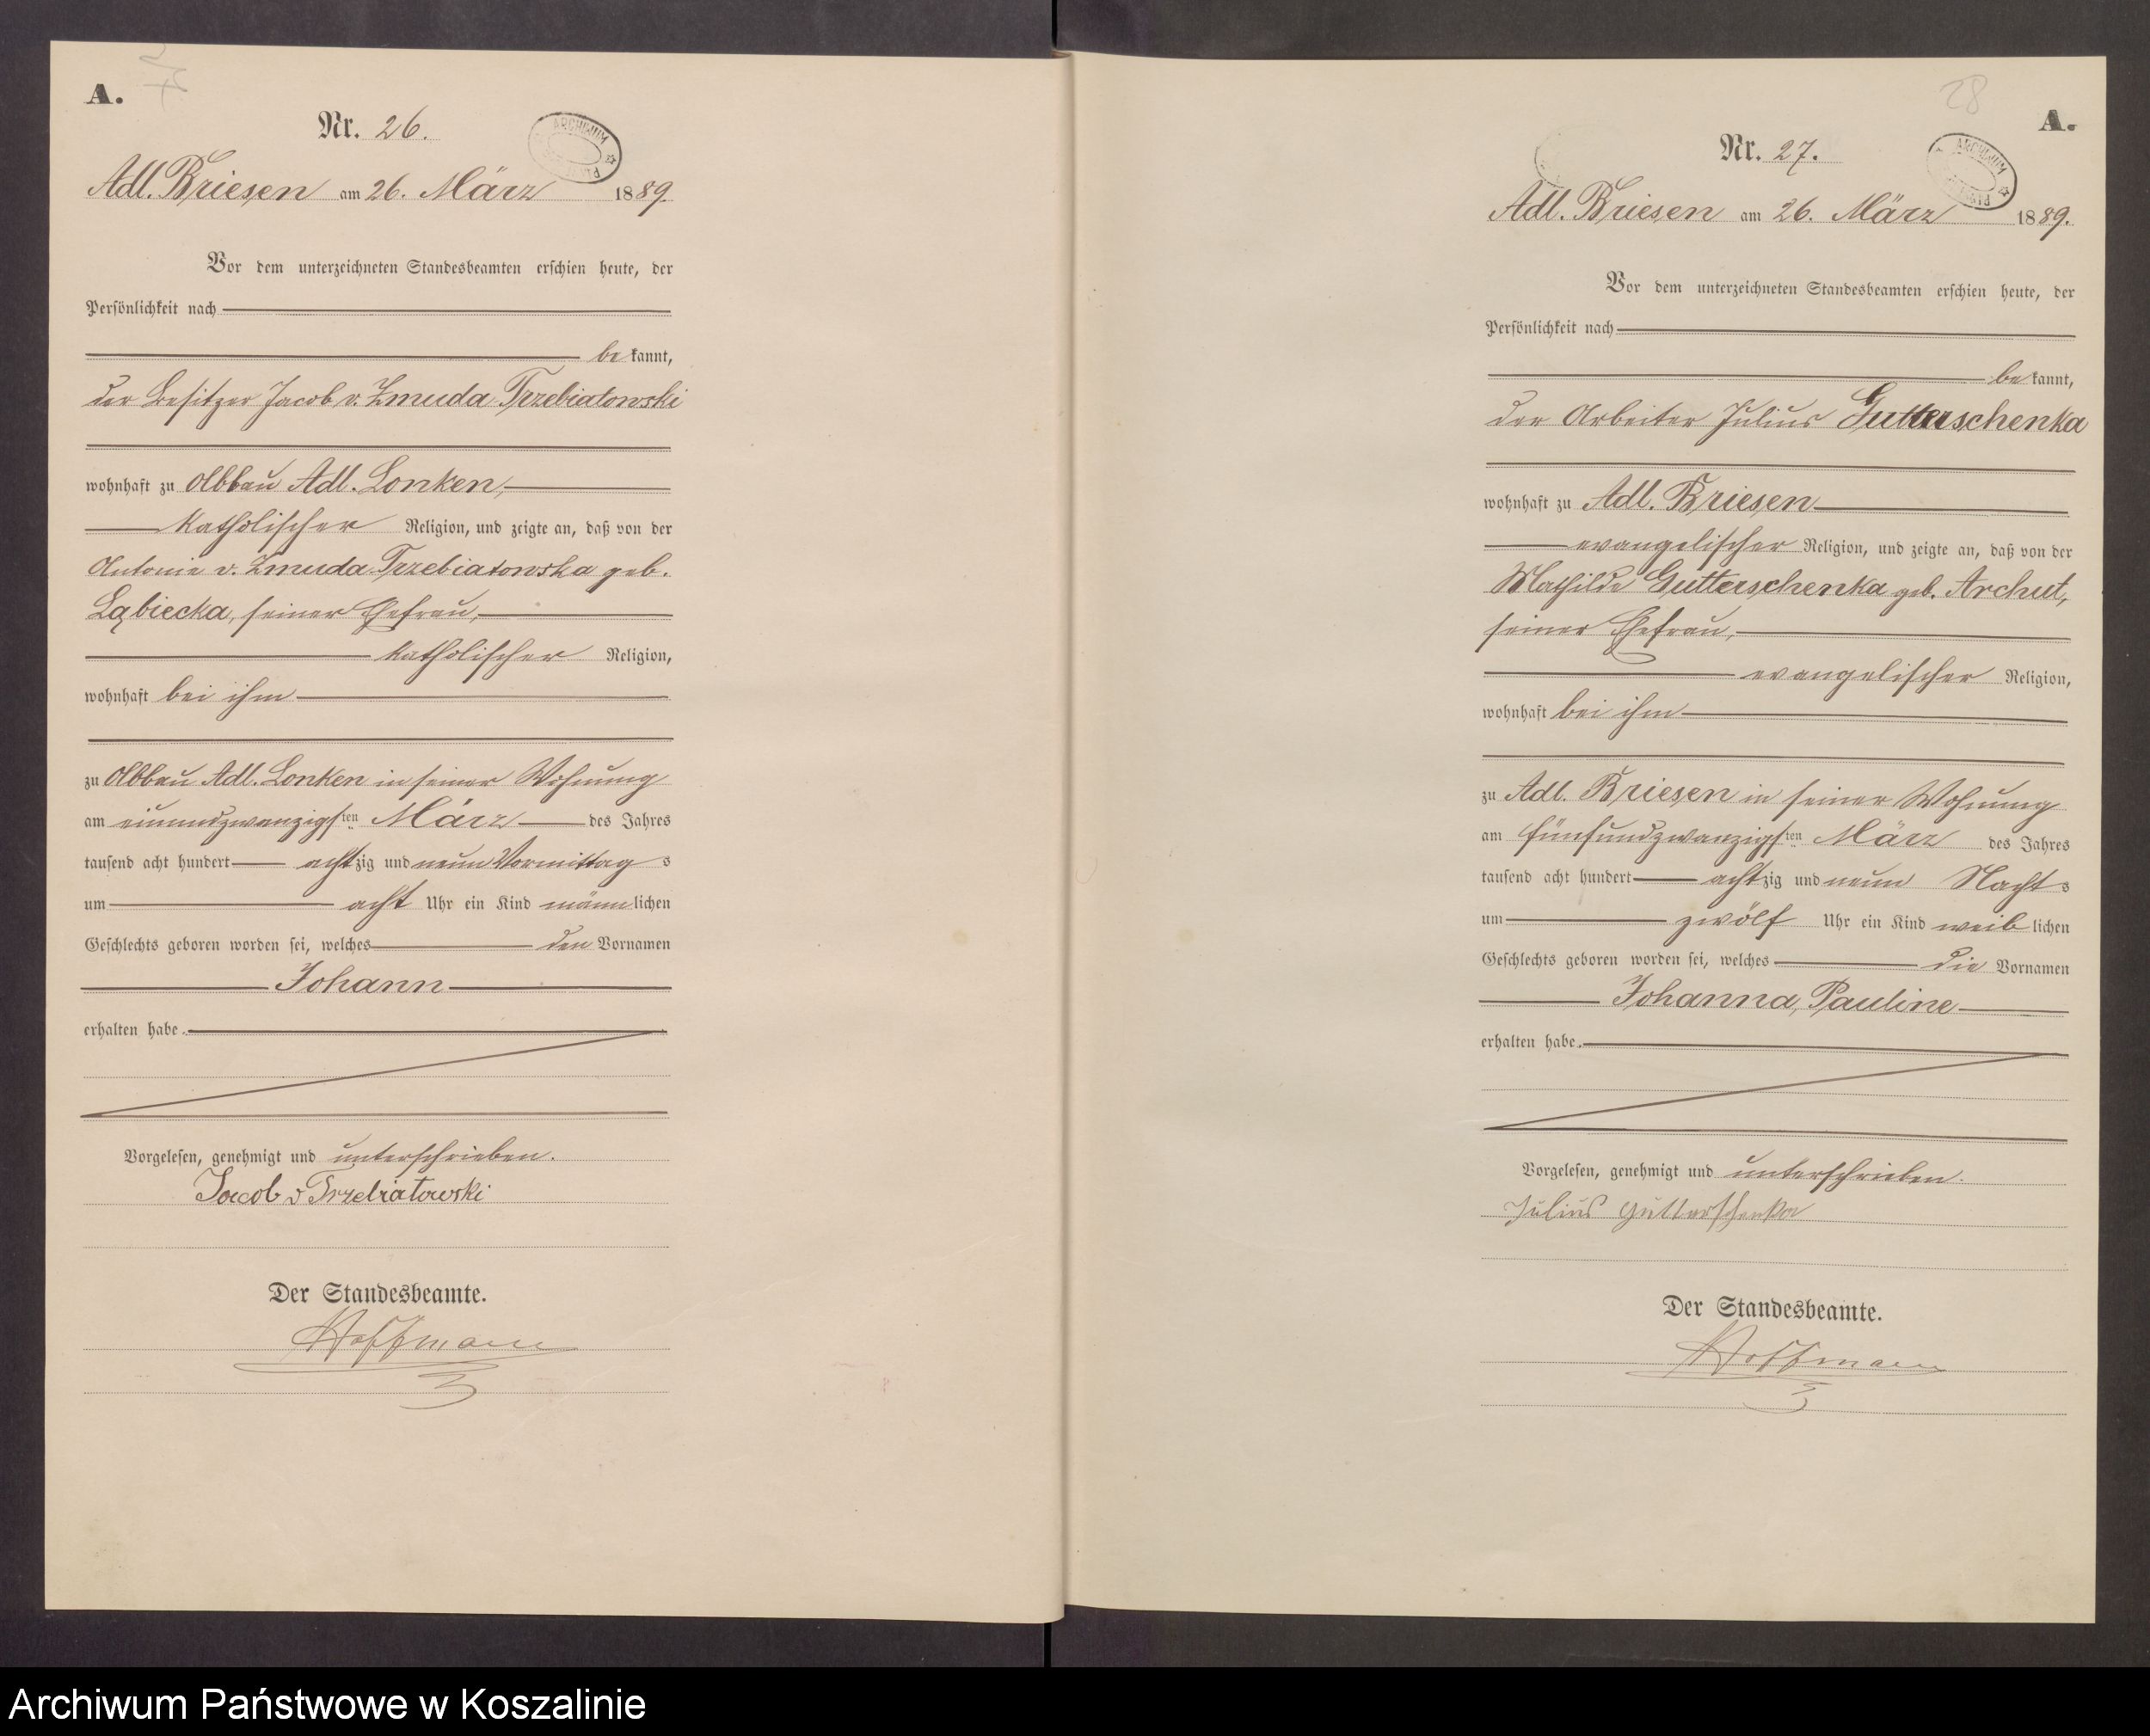 A.
Nr. 26.
ARCHIWUM
Adl. Briesen am 26. März 1889.
Vor dem unterzeichneten Standesbeamten erschien heute, der
Persönlichkeit nach
be kannt,
der Besitzer Jacob v. Zmuda Trzebiatowski
wohnhaft zu Abbau Adl. Lonken,
katholischer Religion, und zeigte an, daß von der
Antonie v. Zmuda Trzebiatowska geb.
Ląbiecka, seiner Ehefrau,
katholischer Religion,
wohnhaft bei ihm
zu Abbau Adl. Lonken in seiner Wohnung
am einundzwanzigsten März des Jahres
tausend acht hundert achtzig und neun Vormittag s
um acht Uhr ein Kind männlichen
Geschlechts geboren worden sei, welches den Vornamen
Johann
erhalten habe.
Vorgelesen, genehmigt und unterschrieben.
Jacob v Trzebiatowski
Der Standesbeamte.
Hoffmann
28
A.
Nr. 27.
ARCHIWUM
Adl. Briesen am 26. März 1889.
Vor dem unterzeichneten Standesbeamten erschien heute, der
Persönlichkeit nach
be kannt,
der Arbeiter Julius Gutterschenka
wohnhaft zu Adl. Briesen
evangelischer Religion, und zeigte an, daß von der
Mathilde Gutterschenka geb. Archut,
seiner Ehefrau,
evangelischer Religion,
wohnhaft bei ihm
zu Adl. Briesen in seiner Wohnung
am fünfundzwanzigsten März des Jahres
tausend acht hundert achtzig und neun Nacht s
um zwölf Uhr ein Kind weib lichen
Geschlechts geboren worden sei, welches die Vornamen
Johanna, Pauline
erhalten habe.
Vorgelesen, genehmigt und unterschrieben.
Julius Gutterschenka
Der Standesbeamte.
Hoffmann
Archiwum Państwowe w Koszalinie